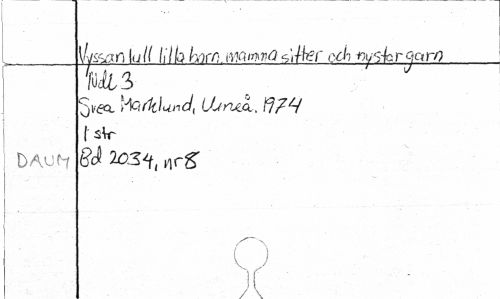 Vyssan lull lilla barn, mamma sitter och nystar garn
Ndl 3
Svea Marklund, Umeå. 1974
1 str
DAUM Bd 2034, nr 8